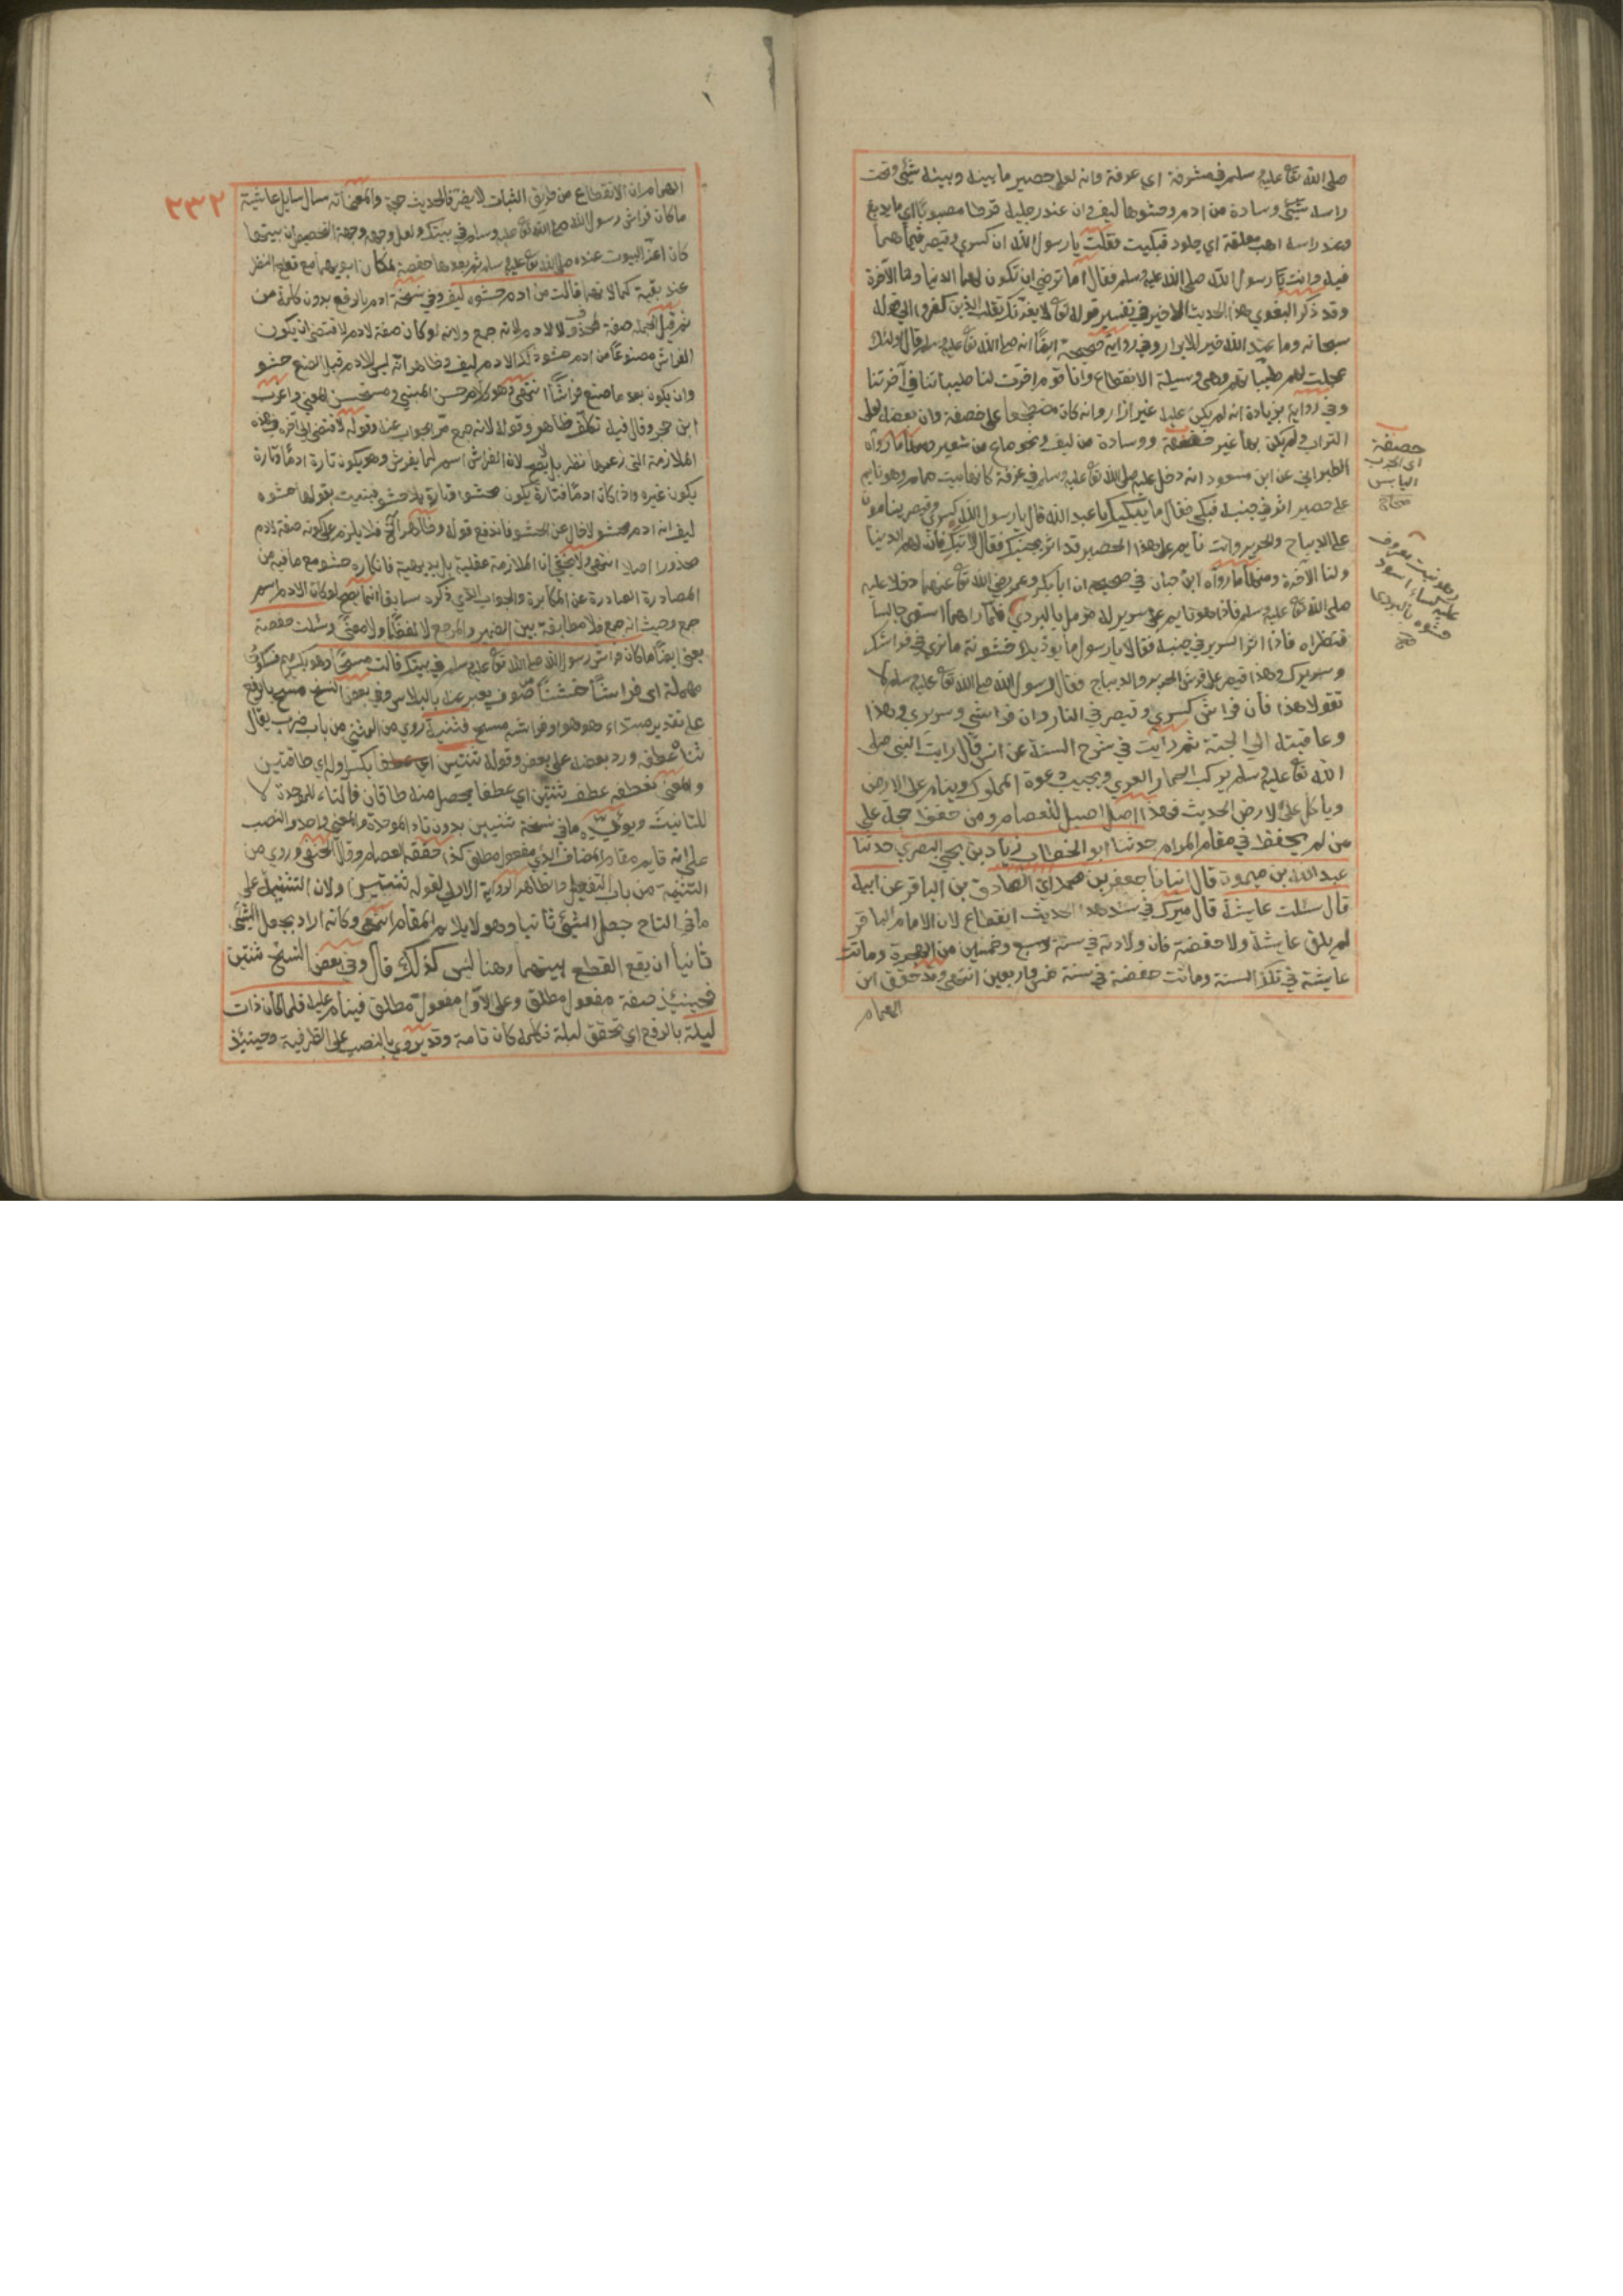 صلى الله تع عليه وسلم في مشربة اي غرفة وانه لعلى حصير ما بينه وبينه شيئ وتحت
راسه وسادة من ادم وحشوها ليف وان عند رجليه قرظا مصبوبا اي ما يدبغ
وعند راسه اهب معلقة اي جلود فبكيت فقلت يا رسول الله ان كسري وقيصر فيما هما
فيه وانت يا رسول الله صلى الله عليه وسلم فقال اما ترضى ان تكون لهما الدنيا ولنا الآخرة
وقد ذكر البغوي هذا الحديث الاخير في تفسير قوله تع لا يغرنك تقلب الذين كفروا الي قوله
سبحانه وما عند الله خير للابرار وفي رواية صحيحة ايضا انه صلى الله تع عليه وسلم قال اولئك
عجلت لهم طيباتهم وهي وسيلة الانقطاع وانا قوم اخرت لنا طيباتنا في آخرتنا
وفي رواية بزيادة انه لم يكن عليه غير ازار وانه كان مضطجعا على خصفة وان بعضه لعلى
التراب ولم يكن بها غير خصفة ووسادة من ليف ونحو صاع من شعير ومنها ما رواه
الطبراني عن ابن مسعود انه دخل عليه صلى الله تع عليه وسلم في غرفة كانها بيت حمام وهو نايم
على حصير اثر في جنبه فبكى فقال ما يبكيك يا عبد الله قال يا رسول الله كسرى وقيصر ينامون
على الديباج والحرير وانت نايم على هذا الحصير قد اثر بجنبك فقال لا تبك فان لهم الدنيا
ولنا الآخرة ومنها ما رواه ابن حبان في صحيحه ان ابا بكر وعمر رضي الله تع عنهما دخلا عليه
صلى الله تع عليه وسلم فاذا هو نايم على سرير له مزمل بالبردي فلما راهما استوى جالسا
فنظراه فاذا اثر السرير في جنبه فقالا يا رسول ما يوذيك خشونة ما نرى في فراشك
وسريرك وهذا قيصر على فرش الحرير والديباج فقال رسول الله صلى الله تع عليه وسلم لا
تقولا هذا فان فراش كسرى وقيصر في النار وان فراشي وسريري وهذا
وعاقبته الي الجنة ثم رايت في شرح السنة عن انس قال رايت النبي صلى
الله تع عليه وسلم يركب الحمار العري ويجيب دعوة المملوك وينام على الارض
وياكل على الارض الحديث فهذا اصل اصيل للعصام ومن حفظ حجة على
من لم يحفظ في مقام المرام حدثنا ابو الخطاب زياد بن يحيى البصري حدثنا
عبد الله بن ميمون قال انبانا جعفر بن محمد اي الصادق بن الباقر عن ابيه
قال سئلت عايشة قال ميرك في سند هذا الحديث انقطاع لان الامام الباقر
لم يلق عايشة ولا حفصة فان ولادته في سنة وخمسين من الهجرة وماتت
عايشة في تلك السنة وماتت حفصة في سنة خمس واربعين انتهى وقد حقق ابن
الهمام
خصفة
اي الثوب
وهو نبت معروف
عليه كساء اسود
حشوه بالبردي
٢٣٢
الهمام ان الانقطاع من طريق الثبات لا يضر فالحديث حجة والمعنى انه سال سايل عايشة
ما كان فراش رسول الله صلى الله تع عليه وسلم في بيتك ولعل وجهه وجهة التخصيص ان بيتها
كان اعز البيوت عنده صلى الله تع عليه وسلم ثم بعدها حفصة لمكان ابويهما مع قطع النظر
عند بقية كمالاتها قالت من ادم حشوه ليف وفي نسخة ادم بالرفع بدون كلمة من
ثم قيل الجملة صفة لمحذوف لا لادم لانه جمع ولانه لو كان صفة لادم لاقتضى ان يكون
الفراش مصنوعا من ادم حشو ذلك الادم ليف وظاهر انه ليس للادم قبل الصنع حشو
وان يكون بعد ما صنع فراشا انتهى وهو كلام حسن المبنى ومستحسن المعنى واغرب
ابن حجر وقال فيه تكلف ظاهر وقوله لانه جمع مر الجواب عنه وقوله لاقتضى الى آخره هذه
الملازمة التي زعمها نظر بل لا يصح لان الفراش اسم لما يفرش وهو يكون تارة ادما وتارة
يكون غيره واذا كان ادما فتارة يكون محشوا وتارة بلا حشو فبينت بقولها حشوه
ليف انه ادم محشو لا خال عن الحشو فاندفع قوله وظاهر الخ فلا يلزم على كونه صفة لادم
محذورا اصلا انتهى ولا يخفى ان الملازمة عقلية بل بديهية فانكاره حشو مع ما فيه من
المصادرة الصادرة عن المكابرة والجواب الذي ذكره سابقا انما يصح لو كان الادم اسم
جمع وحيث انه جمع فلا مطابقة بين الضمير والمرجع لا لفظا ولا معنى وسئلت حفصة
يعني ايضا ما كان فراش رسول الله صلى الله تع عليه وسلم في بيتك قالت مسحا وهو بكسر ميم فسكون
مهملة اي فراشا خشنا من صوف يعبر عنه بالبلاس وفي بعض النسخ مسح بالرفع
على تقدير مبتداء هو هو وفراشه مسح فثنيه روي من الثني من باب ضرب يقال
ثناه عطفه ورد بعضه على بعض وقوله ثنتين اي عطفا بكسر اوله اي طاقتين
والمعنى نعطفه عطف ثنتين اي عطفا يحصل منه طاقان فالتاء للوحدة لا
للتانيث ويؤيده ما في نسخة ثنيين بدون تاء الوحدة والمعنى واحد والنصب
على انه قايم مقام المضاف الذي مفعول مطلق كذا حققه العصام وقال الحنفي وروي من
التثنية من باب التفعيل والظاهر الرواية الاولى لقوله ثنتين ولان التثنية على
ما في التاج جعل الشيئ ثانيا وهو لا يلايم المقام انتهى وكانه اراد بجعل الشيئ
ثانيا ان يقع القطع بينهما وهنا ليس كذلك قال وفي بعض النسخ ثنتين
فحينئذ صفة مفعول مطلق وعلى الاول مفعول مطلق فينام عليه فلما كان ذات
ليلة بالرفع اي تحقق ليلة فكلمة كان تامة وقد يروي بالنصب على الظرفية وحينئذ